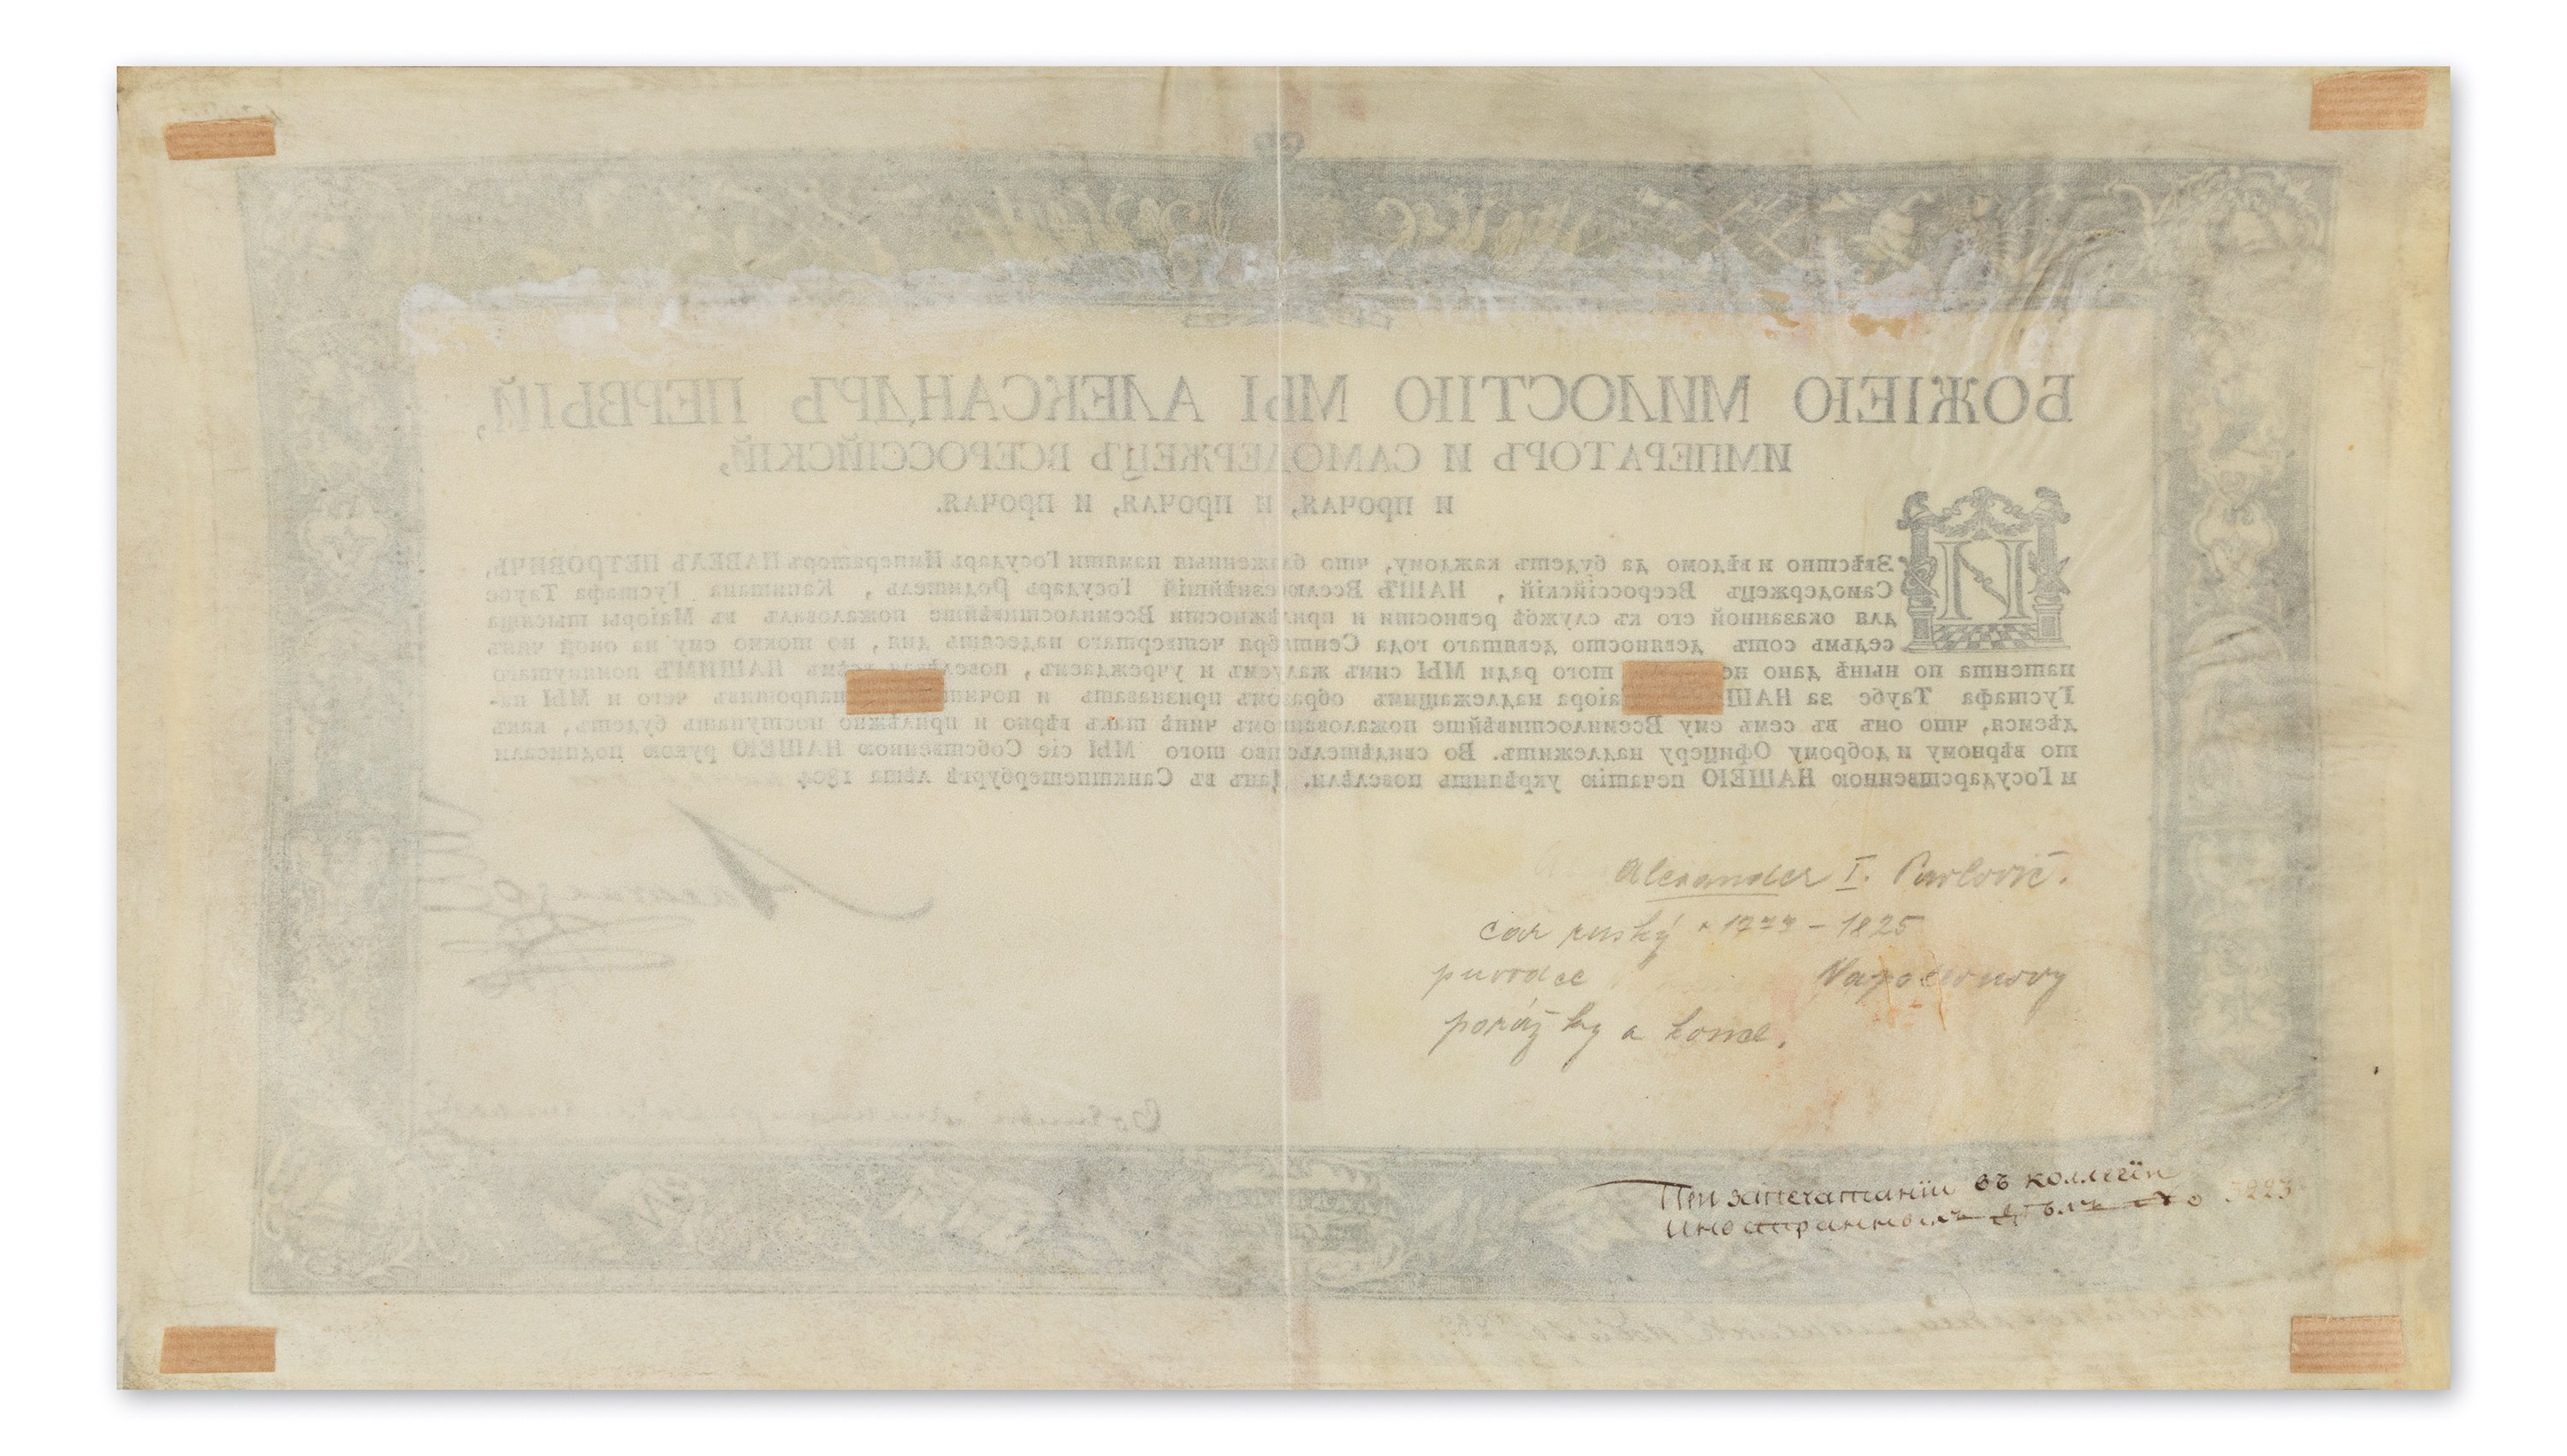 БОЖІЕЮ МИЛОСТІЮ МЫ АЛЕКСАНДРЪ ПЕРВЫЙ,
ИМПЕРАТОРЪ И САМОДЕРЖЕЦЪ ВСЕРОССІЙСКІЙ,
И ПРОЧАЯ, И ПРОЧАЯ, И ПРОЧАЯ.
Звѣстно и вѣдомо да будетъ каждому, что блаженныя памяти Государь Императоръ ПАВЕЛЪ ПЕТРОВИЧЬ,
Самодержецъ Всероссійскій , НАШЪ Вселюбезнѣйшій Государь Родитель , Капитана Густафа Таубе
для оказанной его къ службѣ ревности и прилѣжности Всемилостивѣйше пожаловалъ въ Маіоры тысяща
седьмь сотъ девяносто девятаго года Сентября четвертаго надесять дня , но токмо ему на оной чинъ
патента по нынѣ дано не того ради МЫ симъ жалуемъ и учреждаемъ, повелѣвая всѣмъ НАШИМЪ помянутаго
Густафа Таубе за НАШ маіора надлежащимъ образомъ признавать и почитать напротивъ чего и МЫ на-
дѣемся, что онъ въ семъ ему Всемилостивѣйше пожалованномъ чинѣ такъ вѣрно и прилѣжно поступать будетъ, какъ
то вѣрному и доброму Офицеру надлежитъ. Во свидѣтельство того МЫ сіе Собственною НАШЕЮ рукою подписали
и Государственною НАШЕЮ печатію укрѣпить повелѣли. Данъ въ Санктпетербургѣ лѣта 1804
Alexander I. Pavlovič.
car ruský * 1777 – 1825
původce Napoleonovy
porážky a konce.
При запечатаніи въ коллегіи
иностранныхъ дѣлъ № 3223